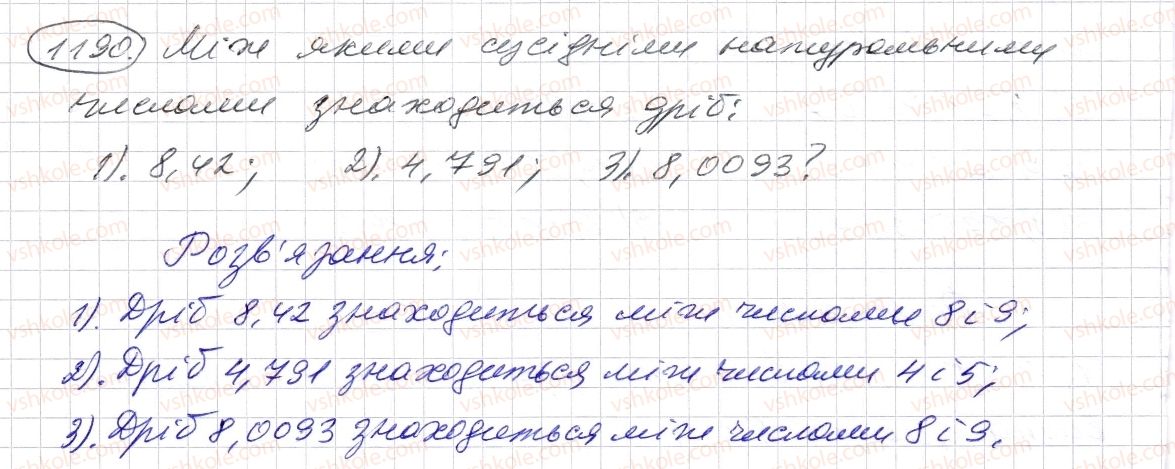 1190. Між якими сусідніми натуральними
числами знаходиться дріб:
1). 8,42; 2). 4,791; 3). 8,0093?
Розв'язання:
1). Дріб 8,42 знаходиться між числами 8 і 9;
2). Дріб 4,791 знаходиться між числами 4 і 5;
3). Дріб 8,0093 знаходиться між числами 8 і 9.
vshkole.com